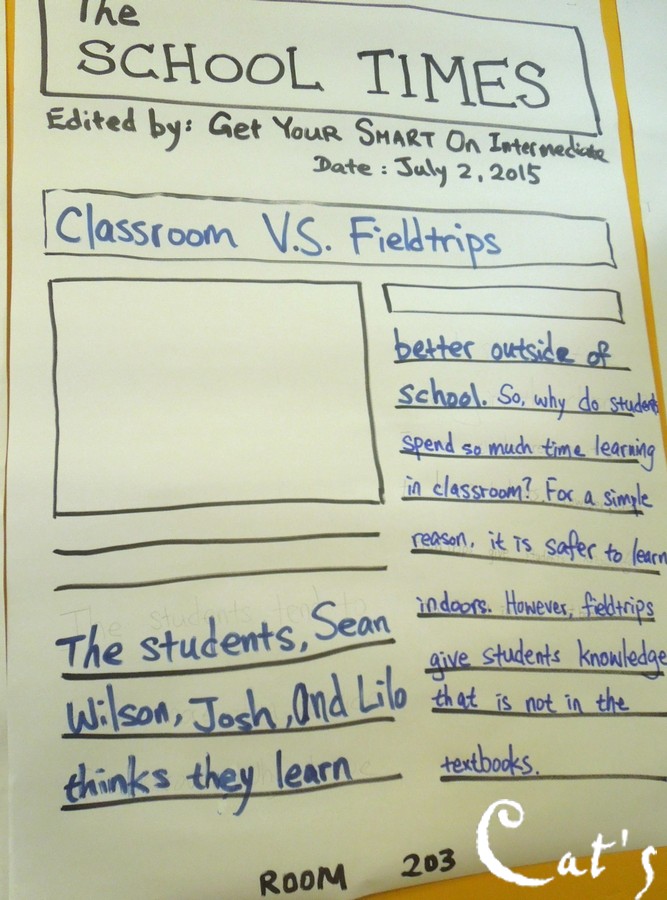 The
SCHOOL TIMES
Edited by: Get YOUR SMART On Intermediate
Date : July 2, 2015
Classroom V.S. Fieldtrips
The students, Sean
Wilson, Josh, and Lilo
thinks they learn
better outside of
school. So, why do students
spend so much time learning
in classroom? For a simple
reason, it is safer to learn
indoors. However, fieldtrips
give students knowledge
that is not in the
textbooks.
ROOM 203
Cat's